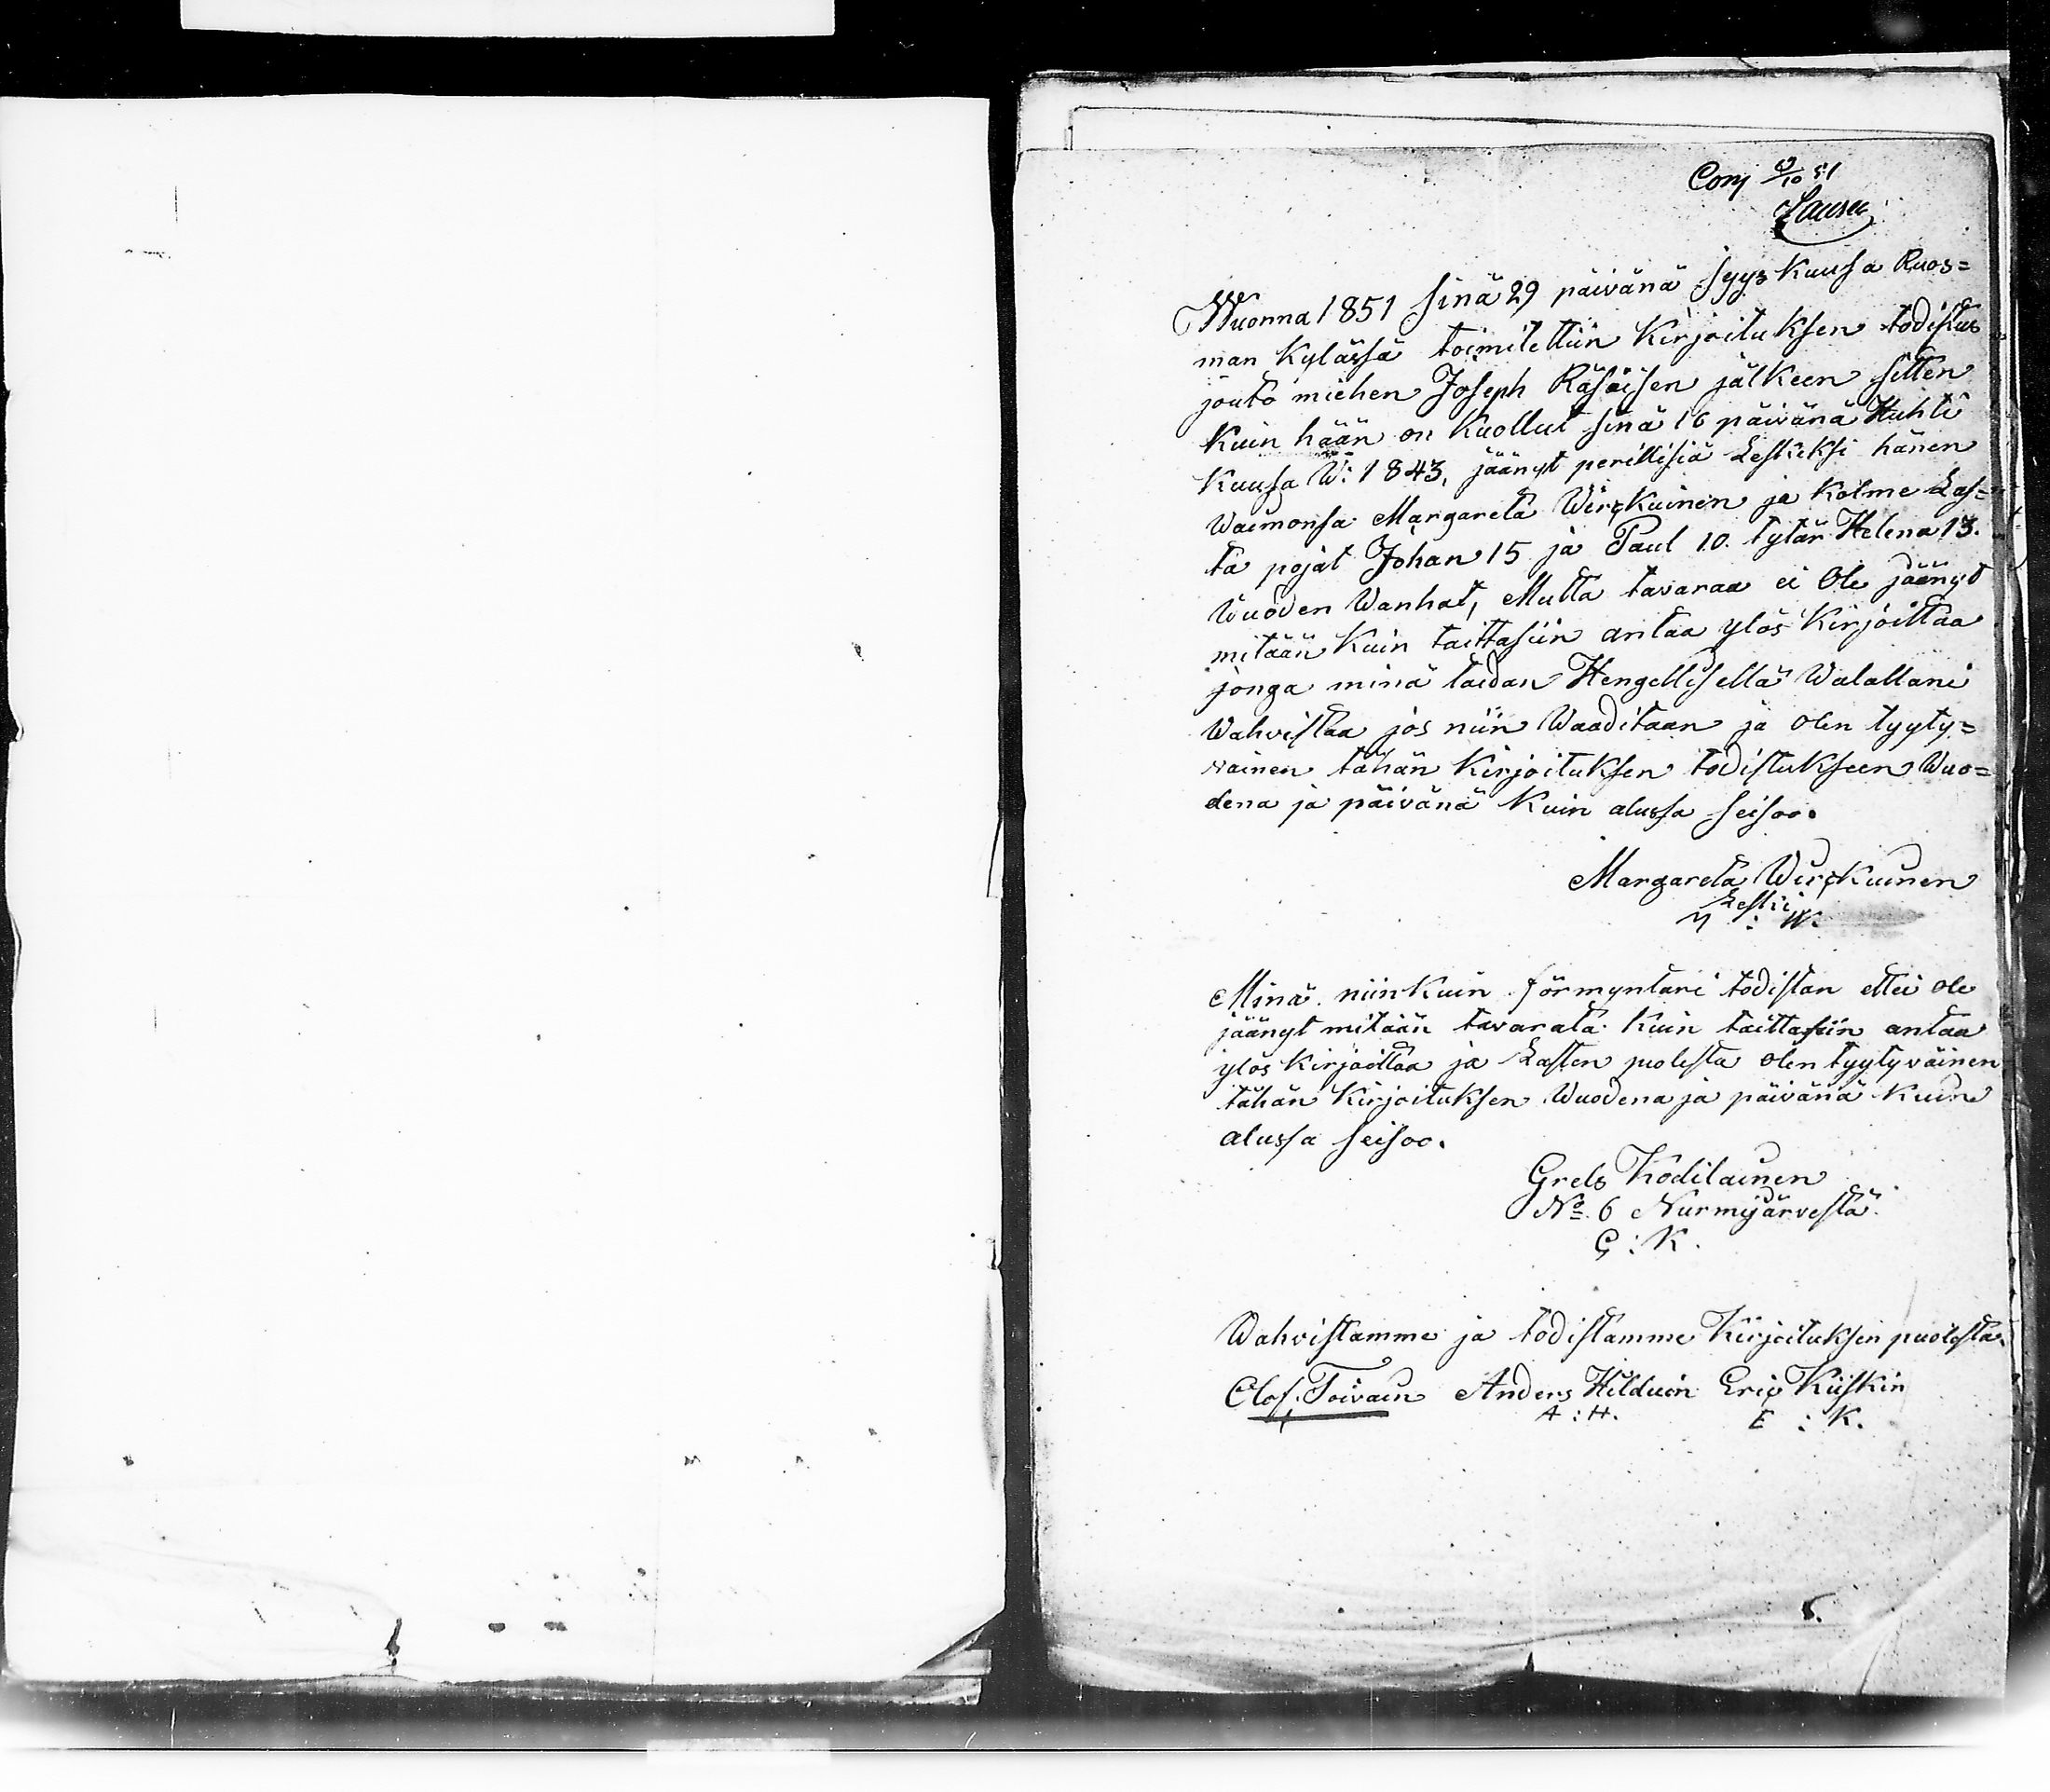 Wuonna 1851 sinä 29 päivänä syys kuusa Ruos=
man kylässä toimitettiin kirjoituksen todistus
jouto miehen Joseph Räsäisen jälkeen sitten
kuin hään on kuollut sinä 16 päivänä Huhti
kuusa W: 1843, jäänyt perillisiä Leskiksi hänen
Waimonsa Margareta Wirckuinen ja kolme Las=
ta pojat Johan 15 ja Paul 10. tytär Helena 13.
Wuoden Wanhat, Mutta tavaraa ei Ole jäänyt
mitään kuin taittasiin antaa ylös kirjoittaa
jonga minä taidan Hengellisellä Walallani
Wahvistaa jos niin Waaditaan ja olen tyyty=
väinen tähän kirjoituksen todistukseen Wuo=
dena ja päivänä kuin alussa seisoo.
Margareta Wirckuinen
Leski
M : W.
Minä niinkuin förmyntäri todistan ettei ole
jäänyt mitään tavarata kuin taittasiin antaa
ylös kirjoittaa ja Lasten puolesta olen tyytyväinen
tähän kirjoituksen Wuodena ja päivänä kuin
alussa seisoo.
Grels Kodilainen
No. 6 Nurmijärvestä.
G : K.
Wahvistamme ja todistamme Kirjoituksen puolesta.
Olof Toivain Anders Hilduin Eric Kiiskin
A : H. E : K.